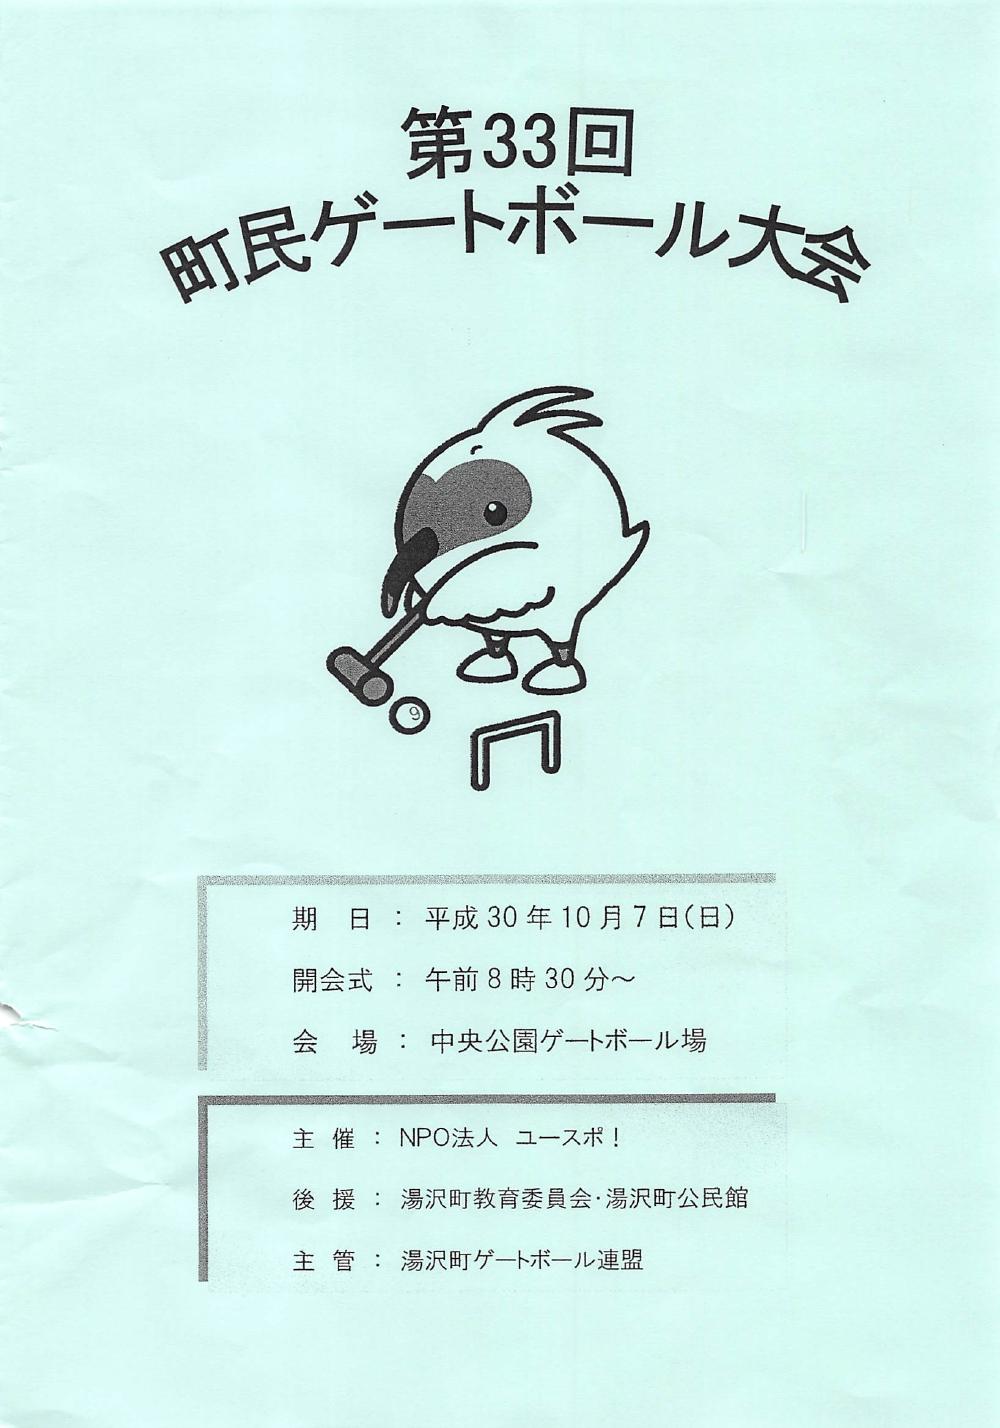 第33回
町民ゲートボール大会
9
期　日 ： 平成 30 年 10 月 7 日(日)
開会式 ： 午前 8 時 30 分～
会　場 ： 中央公園ゲートボール場
主 催 ： NPO法人 ユースポ！
後 援 ： 湯沢町教育委員会・湯沢町公民館
主 管 ： 湯沢町ゲートボール連盟